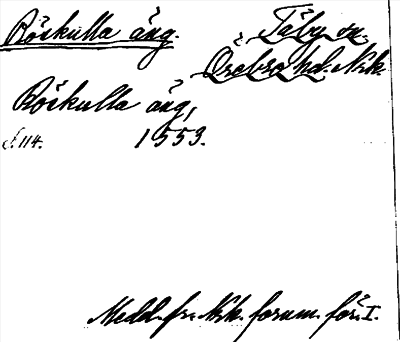 Röskulla äng. Täby sn.
Örebro hd. Nrk.
Röskulla äng,
s. 114. 1553.
Medd. fr. Nrk. fornm. för. I.